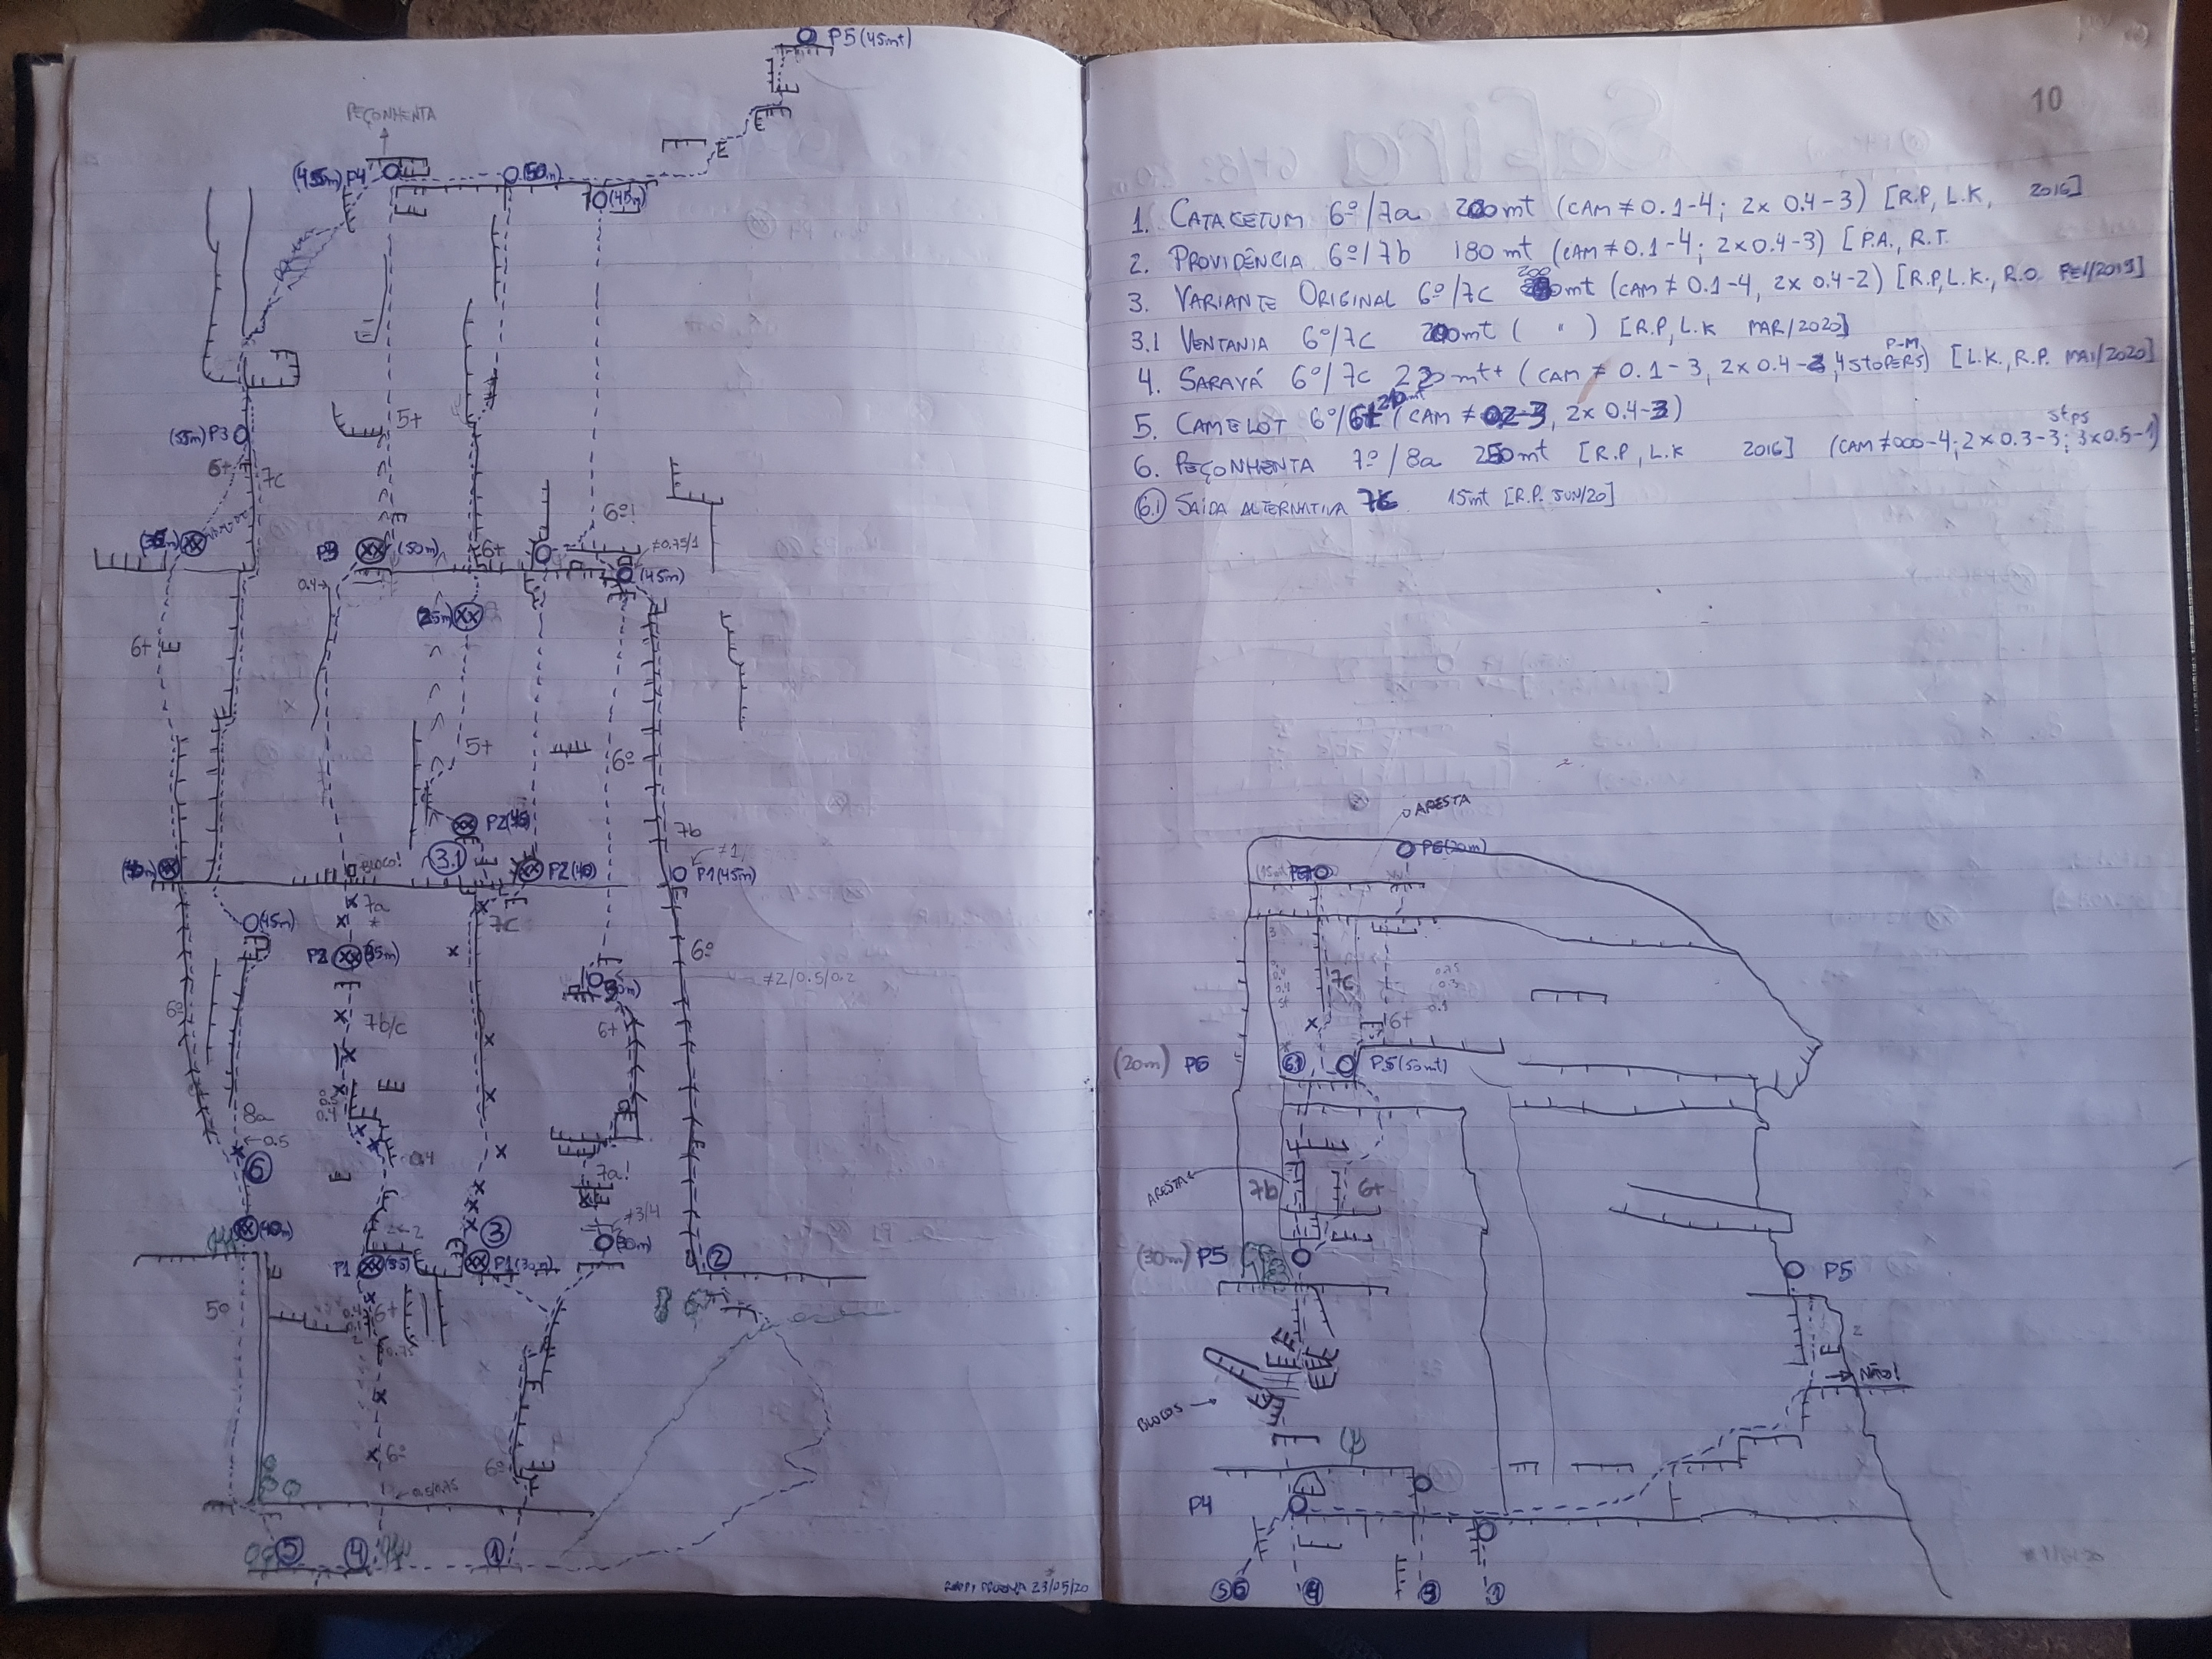 P5 (45mt)
PEÇONHENTA
P4
(50m)
(45m)
5+
(55m) P3
6+
7c
6º!
≠0.75/1
P3
(50m)
6+
(45m)
0.4→
25m)
6+
5+
6º
7b
P2
≠1
BLOCO!
3.1
P2 (40)
P1 (45m)
7a
*
7c
(45m)
P2
6º
≠2/0.5/0.2
6º
7b/c
6+
8a
0.4
←0.5
0.4
6
7a!
≠3/4
(40m)
2
3
2
P1 (55)
P1 (30m)
(30m)
5º
6+
0.75
6º
6º
0.5/0.75
5
4
1
23/05/20
10
1. CATACETUM 6º/7a 200mt (CAM ≠ 0.1-4; 2x 0.4-3) [R.P, L.K, 2016]
2. PROVIDÊNCIA 6º/7b 180mt (CAM ≠ 0.1-4; 2x0.4-3) [P.A., R.T.
3. VARIANTE ORIGINAL 6º/7c 200 mt (CAM ≠ 0.1-4, 2x 0.4-2) [R.P, L.K., R.O. FEV/2019]
3.1 VENTANIA 6º/7c 200mt ( " ) [R.P, L.K MAR/2020]
4. SARAVÁ 6º/7c 220mt+ (CAM ≠ 0.1-3, 2x 0.4-3, 4 STOPERS P-M) [L.K., R.P. MAI/2020]
5. CAMELOT 6º/6+ mt (CAM ≠ 02-3, 2x 0.4-3)
6. PEÇONHENTA 7º/8a 250mt [R.P, L.K 2016] (CAM ≠000-4; 2x0.3-3; 3x0.5-1) stps
6.1 SAÍDA ALTERNATIVA 7c 15mt [R.P. JUN/20]
ARESTA
P6 (20m)
(15mt)
3
7c
0.75
0.3
6+
(20m) P6
6.1
P5 (50mt)
ARESTA
7b
6+
(30m) P5
P5
2
NÃO!
BLOCOS →
P4
5 6
4
3
1